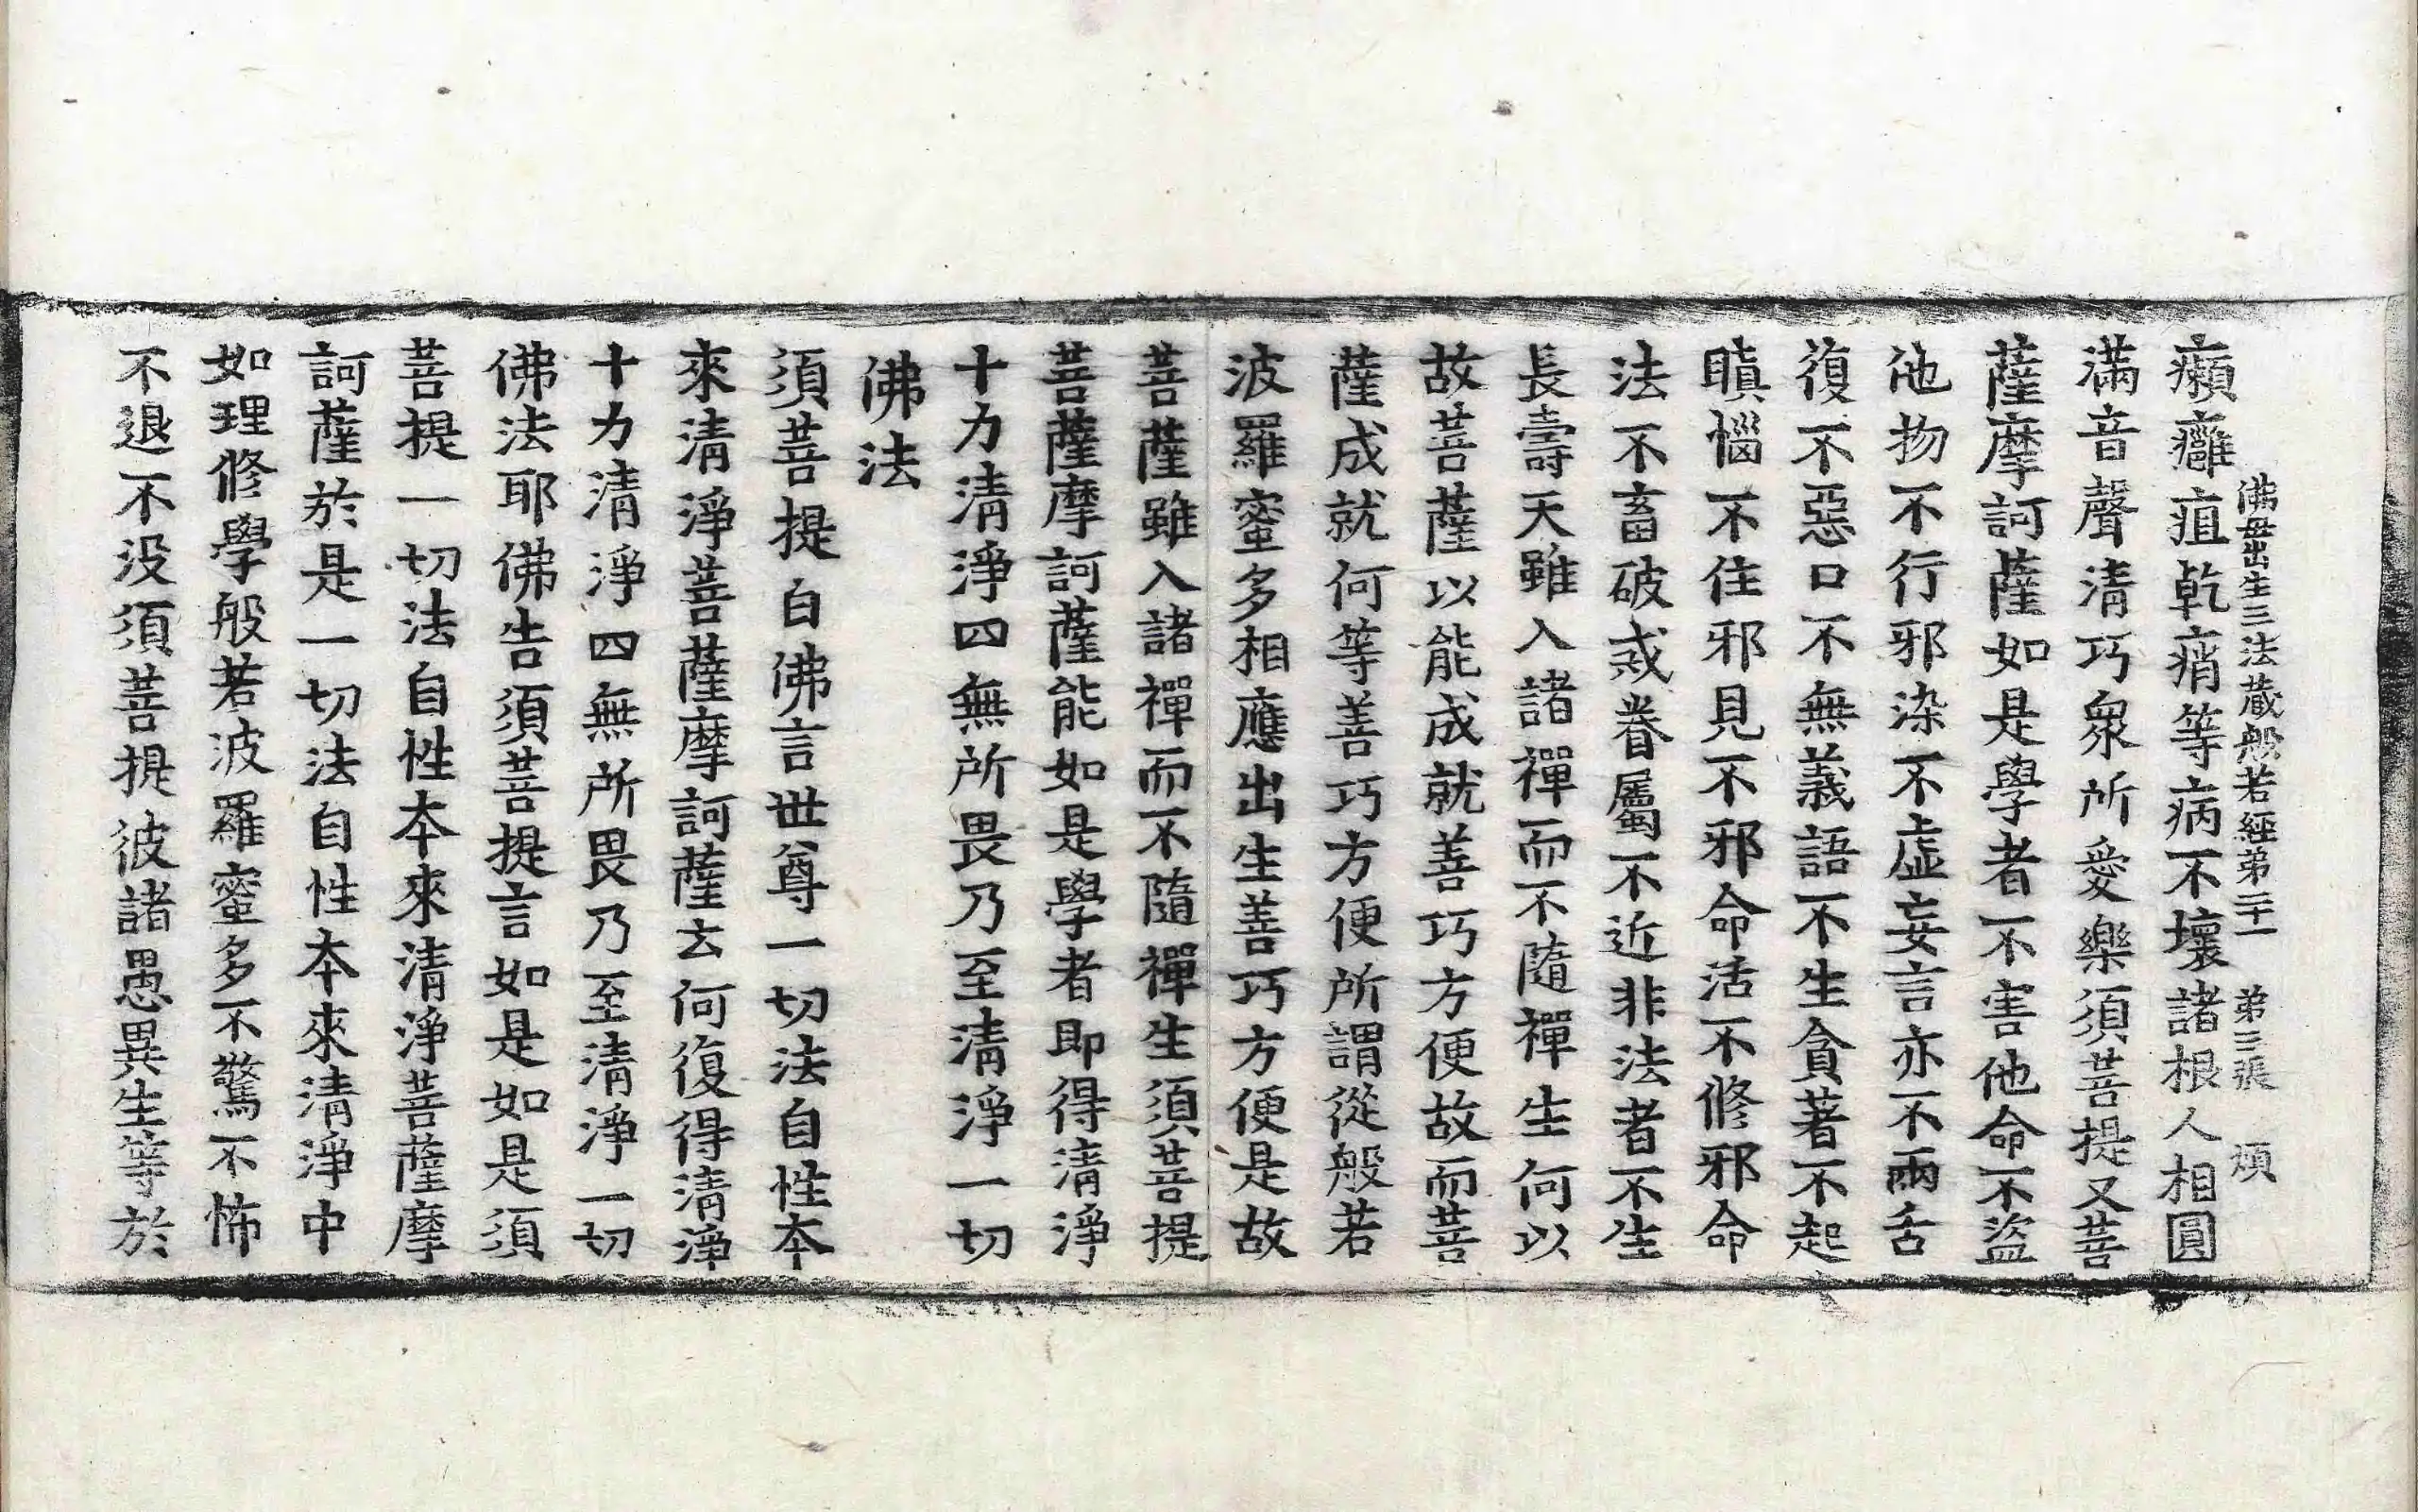 佛母出生三法藏般若經第二十一 第三張 煩
癩癰疽乾痟等病不壞諸根人相圓
滿音聲清巧衆所愛樂須菩提又菩
薩摩訶薩如是學者不害他命不盜
他物不行邪染不虛妄言亦不兩舌
復不惡口不無義語不生貪著不起
瞋惱不住邪見不邪命活不修邪命
法不畜破戒眷屬不近非法者不生
長壽天雖入諸禪而不隨禪生何以
故菩薩以能成就善巧方便故而菩
薩成就何等善巧方便所謂從般若
波羅蜜多相應出生善巧方便是故
菩薩雖入諸禪而不隨禪生須菩提
菩薩摩訶薩能如是學者即得清淨
十力清淨四無所畏乃至清淨一切
佛法
須菩提白佛言世尊一切法自性本
來清淨菩薩摩訶薩云何復得清淨
十力清淨四無所畏乃至清淨一切
佛法耶佛告須菩提言如是如是須
菩提一切法自性本來清淨菩薩摩
訶薩於是一切法自性本來清淨中
如理修學般若波羅蜜多不驚不怖
不退不没須菩提彼諸愚異生等於